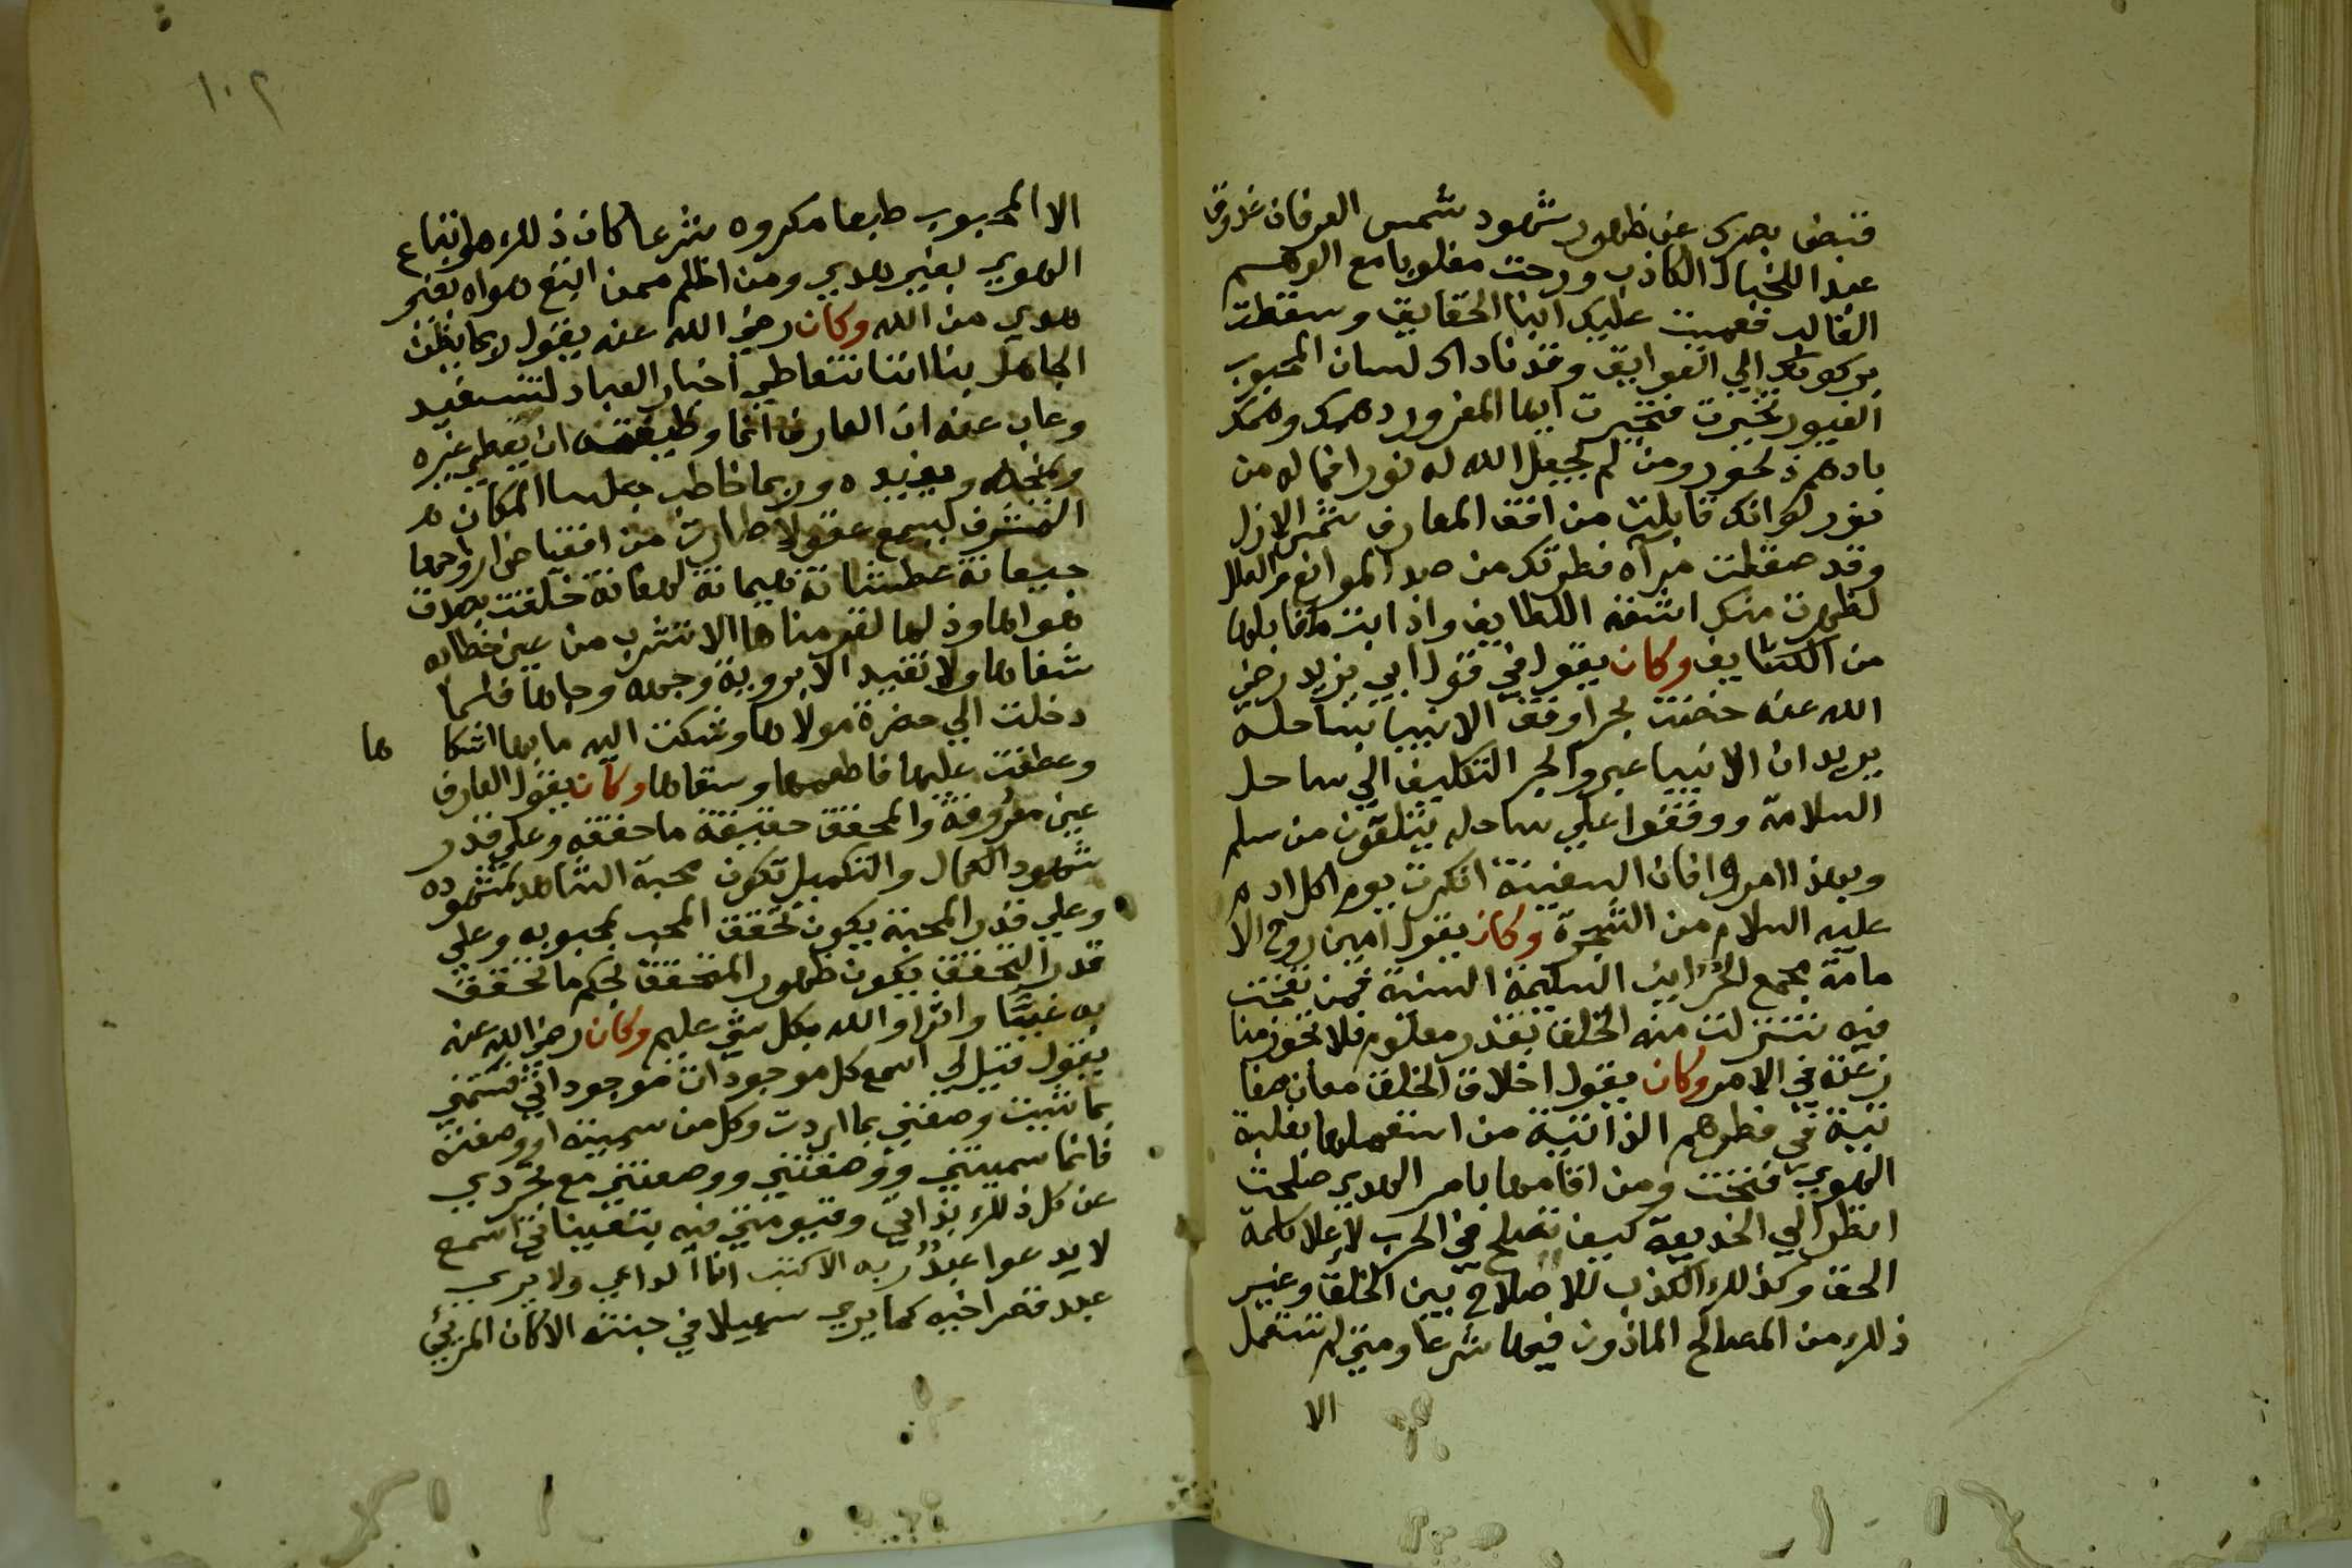 فتبض بصرك عن ظهور شهود شمس العرفان غدوت
عبدا للخيال الكاذب ورحت مغلوبا مع الوهم
الغالب فعميت عليك انبا الحقايق وسقطت
بركونك الي العوايق وقد ناداك لسان المحبوب
الغيور تحيرت فتخيرت ايها المغرور دهمك وهمك
بادهم ديجور ومن لم يجعل الله له نورا فما له من
نور لو انك قابلت من افق المعارف شمس الازل
وقد صقلت مرآة فطرتك من صدا الموانع والعلل
لظهرت منك اشعة اللطايف واذابت مقابلها
من الكثايف وكان يقول في قول ابي يزيد رضي
الله عنه خضت بحرا وقف الانبيا بساحله
يريد ان الانبيا عبروا بحر التكليف الي ساحل
السلامة ووقفوا علي ساحله يتلقون من سلم
وبهذا امروا فان السفينة انكسرت يوم اكل ادم
عليه السلام من الشجرة وكان يقول امين روح الا
مامة مجمع الخزاين السليمة السنية فمن نفخت
فيه تنزلت منه الخلق بقدر معلوم فلا تحوز منا
زعة في الامر وكان يقول اخلاق الخلق معان صفا
تية في فطرهم الذاتية من استعملها بغلبة
الهوي فتحت ومن اقامها بامر الهدي صلحت
انظر الي الخديعة كيف تصلح في الحرب لاعلا كلمة
الحق وكذلك الكذب للاصلاح بين الخلق وغير
ذلك من المصالح الماذون فيها شرعا ومتي لم تستعمل
الا
١٠٢
الا المحبوب طبعا مكروه شرعا كان ذلك هو اتباع
الهوي بغير هدي ومن اظلم ممن اتبع هواه بغير
هدي من الله وكان رضي الله عنه يقول ربما يظن
الجاهل بنا اننا نتعاطي اخبار العباد لتستفيد
وغاب عنه ان العارف انما وظيفته ان يعطي غيره
ويمنحه ويفيده وربما خاطب جلسا المكان
المشرف ليسمع عقولا طارت من اقفياص ارواحها
جيعانة عطشانة هيمانة لهفانة خلقت بصدق
هواها وذلها لقومناها الا تشرب من عين خطابه
شفاها ولا تقيد الا بروية وجهه وجاها فلما
دخلت الي حضرة مولاها وشكت اليه ما بها اشكا ها
وعطفت عليها فاطعمها وسقاها وكان يقول العارف
عين معروفه والمحقق حقيقة ما حققه وعلي قدر
شهود الكمال والتكميل تكون محبة الشاهد لمشهوده
وعلي قدر المحبة يكون تحقق المحب بمحبوبه وعلي
قدر التحقق يكون ظهور المتحقق بحكم ما تحقق
به عينا واثرا والله بكل شي عليم وكان رضي الله عنه
يقول قيل لي اسمع كل موجود ان موجوداتي فسمني
بما شيت وصفني بما اردت وكل من سميته او وصفته
فانما سميتني ووصفتني ووصفتني مع تجردي
عن كل ذلك بذاتي وقيومتي فيه بتعيناتي اسمع
لا يدعوا عبد ربه الا كنت انا الداعي ولا يري
عبد قصر اخيه كما يري سهيلا في جنته الا كان المرئي